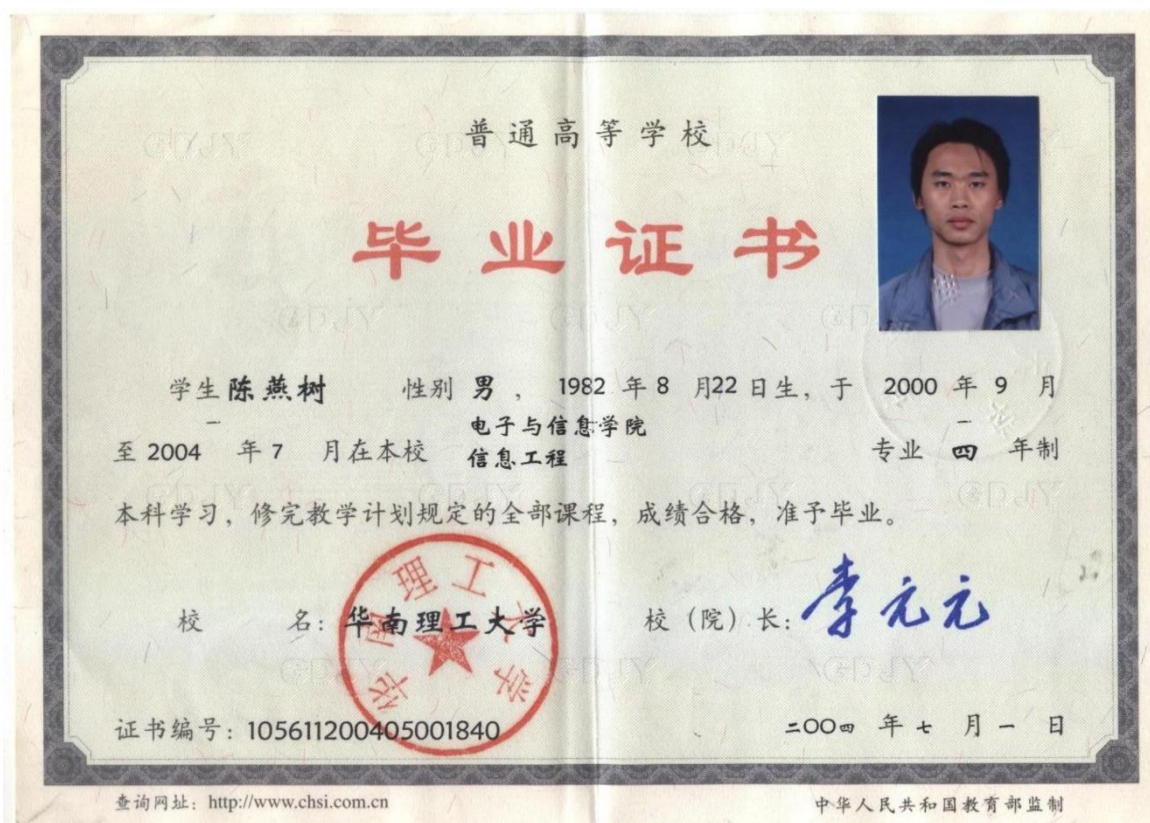 普通高等学校
毕业证书
学生 陈燕树 性别 男 , 1982 年 8 月 22 日生, 于 2000 年 9 月
至 2004 年 7 月在本校 电子与信息学院 信息工程 专业 四 年制
本科学习, 修完教学计划规定的全部课程, 成绩合格, 准予毕业。
校 名: 华南理工大学 校 (院) 长: 李元元
华南理工大学
证书编号: 105611200405001840 二〇〇四 年 七 月 一 日
查询网址: http://www.chsi.com.cn 中华人民共和国教育部监制